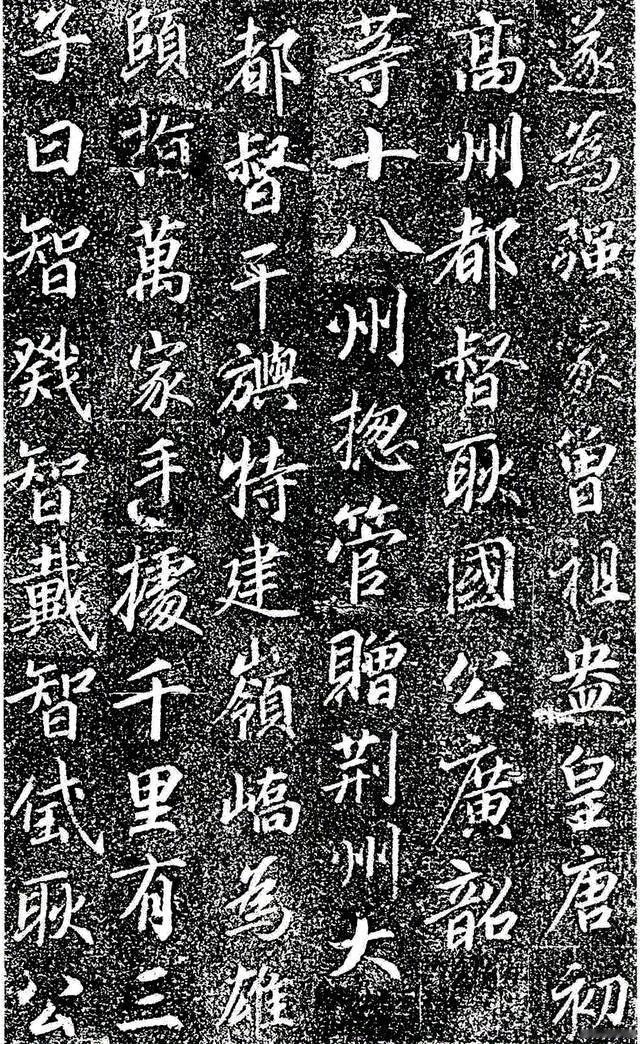 遂為强家曾祖盎皇唐初
高州都督耿國公廣韶
等十八州揔管贈荊州大
都督干旟特建嶺嶠為雄
頤指萬家手據千里有三
子曰智戣智戴智耿公